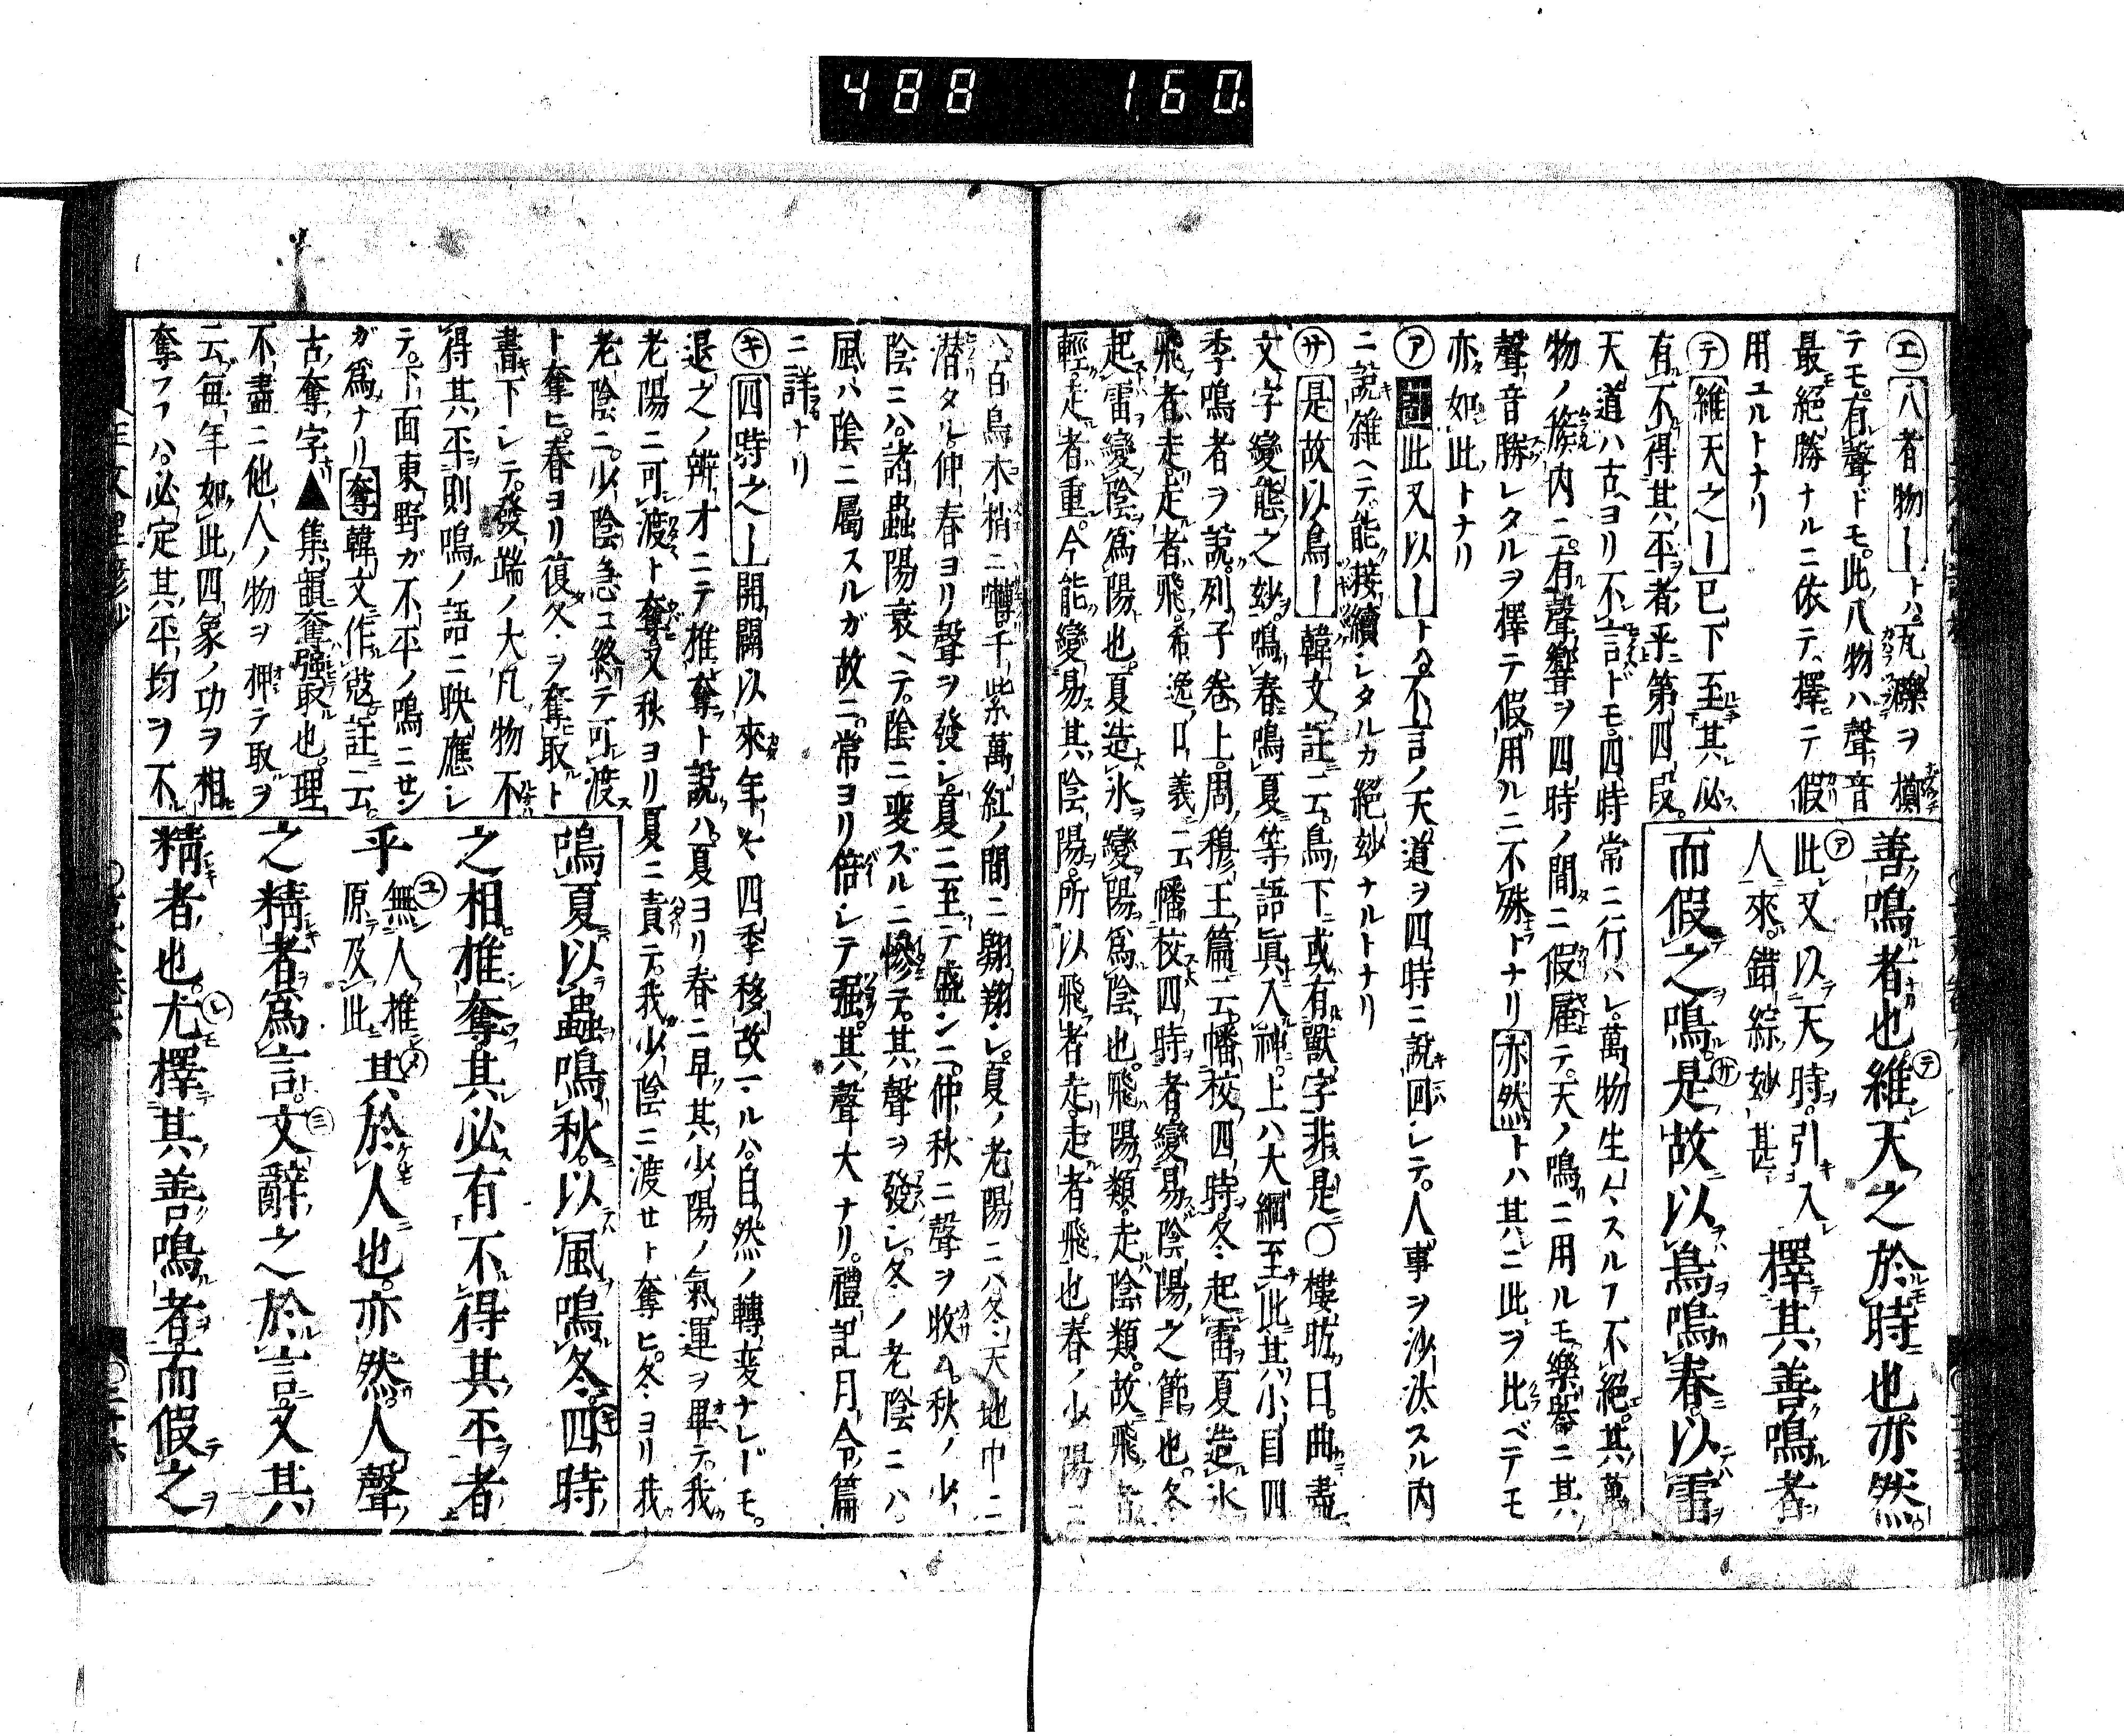 488 160.
㋓八者物―トハ。瓦礫ヲ擲
テモ。有聲ドモ。此八物ハ聲音
最絶勝ナルニ依テ、擇ニテ假
用ユルトナリ
㋢維天之―已下至其必
有不得其平者乎第四段。
善鳴者也。維天之於時也亦然
此又以天時。引入
人來。錯綜妙甚
擇其善鳴者
而假之鳴。是故以鳥鳴春。以雷
天道ハ古ヨリ不言ドモ。四時常ニ行ハレ。萬物生〻スルフ不絶。其萬
物ノ簇内ニ。有聲響ヲ四時ノ間ニ假雇テ。天ノ鳴ニ用ルモ。樂器ニ其
聲音勝レタルヲ擇テ假用ルニ不殊トナリ亦然トハ其ニ此ヲ比ベテモ
亦如此トナリ
㋐此又以―トハ。不言ノ天道ヲ四時ニ說回レテ。人事ヲ沙汰スル内
ニ說雜ヘテ。能接續レタルカ絶妙ナルトナリ
㋚是故以鳥―韓文註云。鳥下或有獸字非是〇樓昉曰。曲盡
文字變態之妙。鳴春鳴夏等語眞入神。上ハ大綱至此其小目四
季鳴者ヲ說。列子卷上。周穆王篇云。幡校四時。冬起雷夏造氷。
飛者走。走者飛。希逸口義云幡校四時者變易陰陽之節也。冬
起雷變陰爲陽也。夏造氷變陽爲陰也。飛陽類。走陰類。故飛者
輕走者重。今能變易其陰陽。所以飛者走。走者飛也春ノ少陽ニ
ハ百鳥木梢ニ囀。千紫萬紅ノ間ニ翺翔レ。夏ノ老陽ニハ冬天地巾ニ
潜タル仲春ヨリ聲ヲ發レ。夏ニ至テ盛ンニ。仲秋ニ聲ヲ收ム。秋ノ少
陰ニハ。諸蟲陽衰ヘテ。陰ニ変ズルニ慘テ。其聲ヲ發レ。冬ノ老陰ニハ。
風ハ陰ニ屬スルガ故ニ。常ヨリ倍レテ强。其聲大ナリ。禮記月令篇
ニ詳ナリ
㋖四時之―開闢以來年〻四季移改ールハ。自然ノ轉変ナレドモ。
退之ノ辨才ニテ推奪ト說ハ。夏ヨリ春ニ早其少陽ノ氣運ヲ畢テ。我
老陽ニ可渡ト奪又秋ヨリ夏ニ責テ。我少陰ニ渡セト奪ヒ。冬ヨリ我
老陰ニ。少陰急コ終テ可渡
ト奪ヒ。春ヨリ復冬ヲ奪取ト
書下レテ。發端ノ大凡物不
得其平則鳴ノ語ニ映應レ
テ。下面東野ガ不平ノ鳴ニサン
ガ爲ナリ奪韓文作敚註云。
古奪字▲集韻奪强取也。理
不盡ニ他人ノ物ヲ押テ取ヲ
云。每年如此四象ノ功ヲ相
奪フフハ。必定其平均ヲ不
鳴夏。以蟲鳴秋。以風鳴冬。四時
之相推奪。其必有不得其平者
乎
無人推
原及此
其於人也。亦然。人聲
之精者爲言。文辭之於言。又其
精者也。尤擇其善鳴者而假之